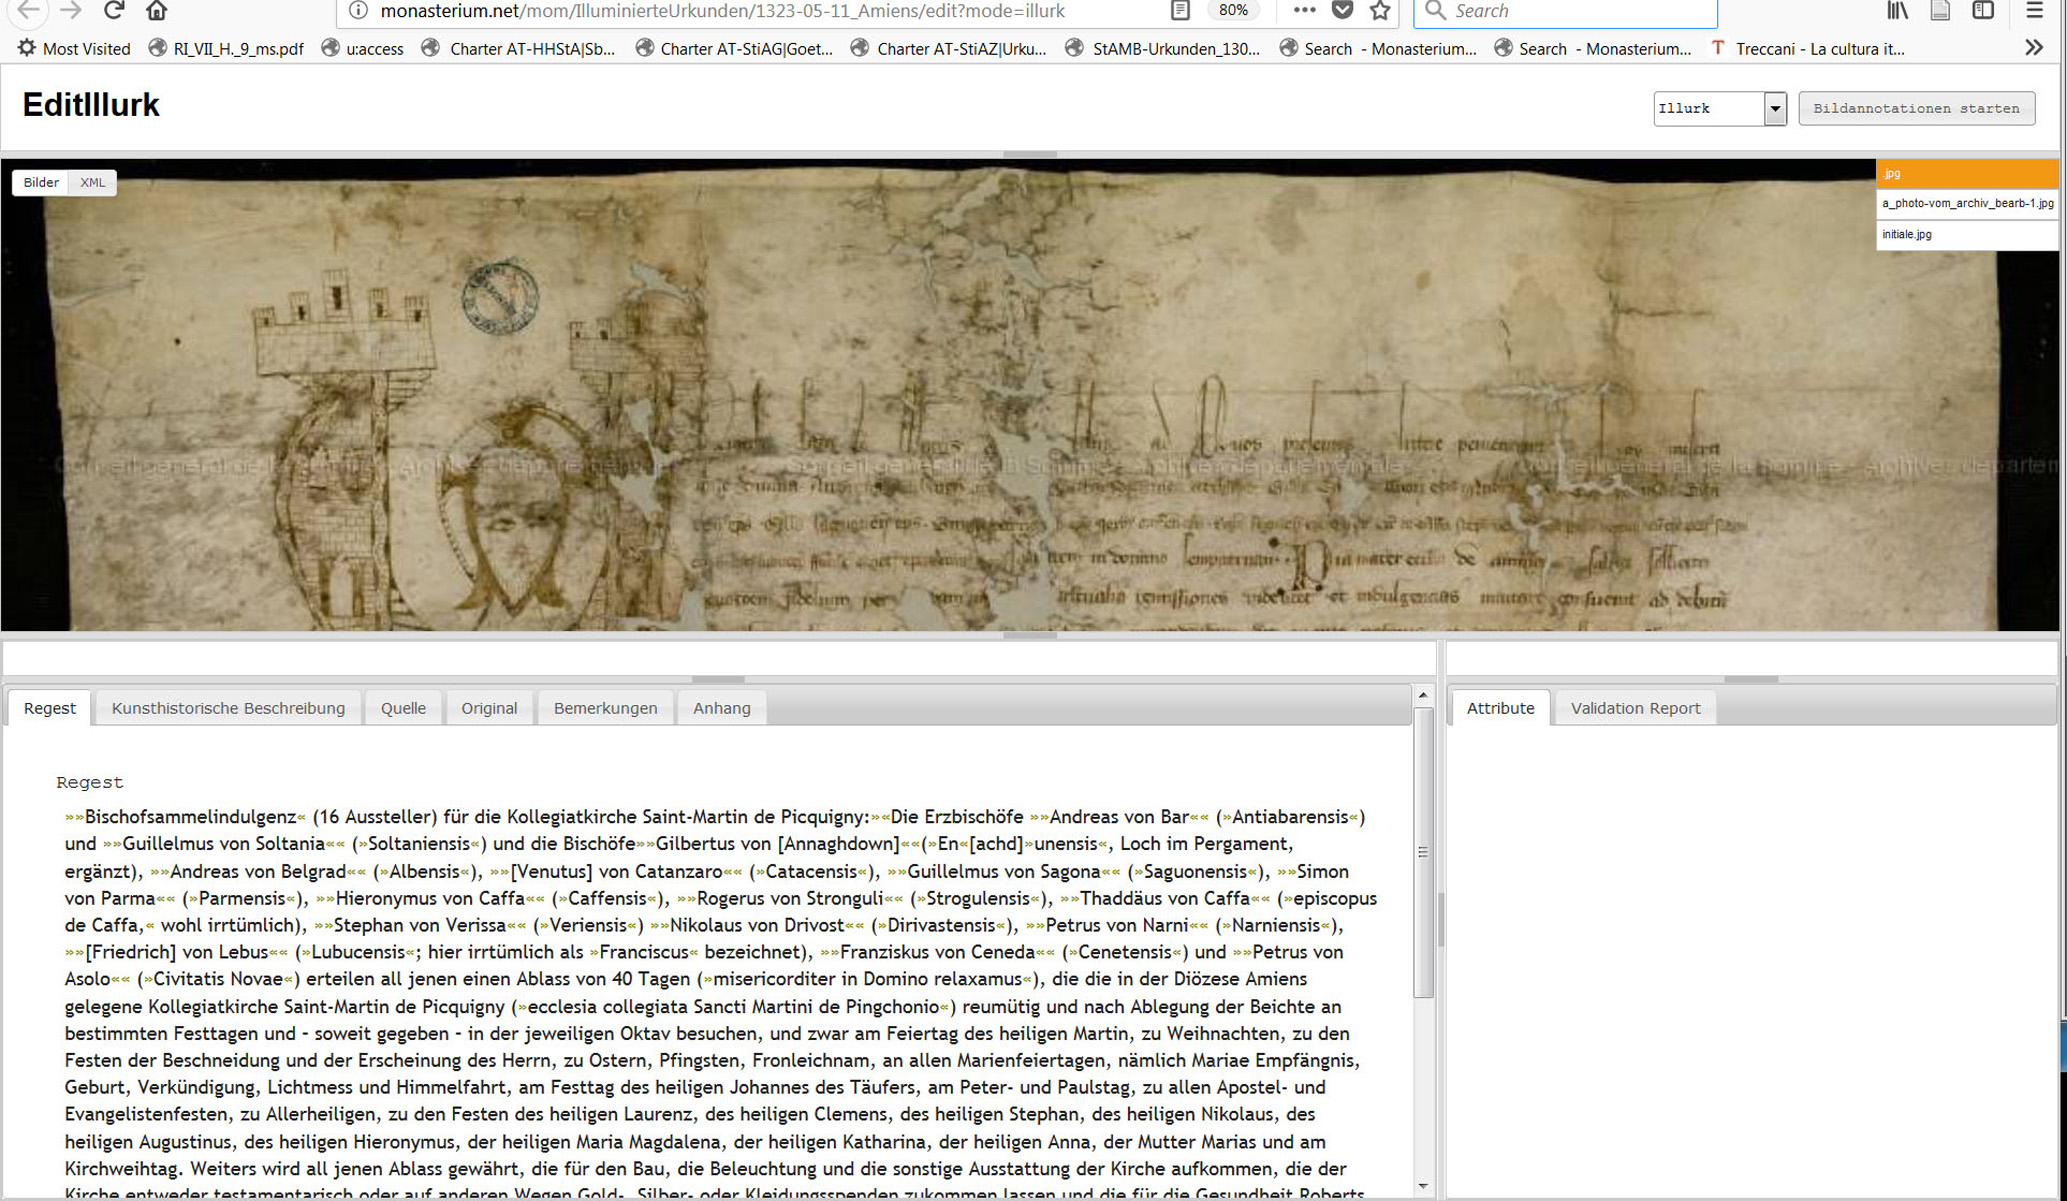 monasterium.net/mom/IlluminierteUrkunden/1323-05-11_Amiens/edit?mode=illurk
80%
Search
Most Visited
RI_VII_H._9_ms.pdf
u:access
Charter AT-HHStA|Sb...
Charter AT-StiAG|Goet...
Charter AT-StiAZ|Urku...
StAMB-Urkunden_130...
Search - Monasterium...
Search - Monasterium...
T Treccani - La cultura it...
EditIllurk
Illurk
Bildannotationen starten
Bilder
XML
.jpg
a_photo-vom_archiv_bearb-1.jpg
initiale.jpg
Conseil general de la Somme - Archives departementales
Regest
Kunsthistorische Beschreibung
Quelle
Original
Bemerkungen
Anhang
Attribute
Validation Report
Regest
»»Bischofsammelindulgenz« (16 Aussteller) für die Kollegiatkirche Saint-Martin de Picquigny:»«Die Erzbischöfe »»Andreas von Bar«« (»Antiabarensis«)
und »»Guillelmus von Soltania«« (»Soltaniensis«) und die Bischöfe»»Gilbertus von [Annaghdown]««(»En«[achd]»unensis«, Loch im Pergament,
ergänzt), »»Andreas von Belgrad«« (»Albensis«), »»[Venutus] von Catanzaro«« (»Catacensis«), »»Guillelmus von Sagona«« (»Saguonensis«), »»Simon
von Parma«« (»Parmensis«), »»Hieronymus von Caffa«« (»Caffensis«), »»Rogerus von Stronguli«« (»Strogulensis«), »»Thaddäus von Caffa«« (»episcopus
de Caffa,« wohl irrtümlich), »»Stephan von Verissa«« (»Veriensis«) »»Nikolaus von Drivost«« (»Dirivastensis«), »»Petrus von Narni«« (»Narniensis«),
»»[Friedrich] von Lebus«« (»Lubucensis«; hier irrtümlich als »Franciscus« bezeichnet), »»Franziskus von Ceneda«« (»Cenetensis«) und »»Petrus von
Asolo«« (»Civitatis Novae«) erteilen all jenen einen Ablass von 40 Tagen (»misericorditer in Domino relaxamus«), die die in der Diözese Amiens
gelegene Kollegiatkirche Saint-Martin de Picquigny (»ecclesia collegiata Sancti Martini de Pingchonio«) reumütig und nach Ablegung der Beichte an
bestimmten Festtagen und - soweit gegeben - in der jeweiligen Oktav besuchen, und zwar am Feiertag des heiligen Martin, zu Weihnachten, zu den
Festen der Beschneidung und der Erscheinung des Herrn, zu Ostern, Pfingsten, Fronleichnam, an allen Marienfeiertagen, nämlich Mariae Empfängnis,
Geburt, Verkündigung, Lichtmess und Himmelfahrt, am Festtag des heiligen Johannes des Täufers, am Peter- und Paulstag, zu allen Apostel- und
Evangelistenfesten, zu Allerheiligen, zu den Festen des heiligen Laurenz, des heiligen Clemens, des heiligen Stephan, des heiligen Nikolaus, des
heiligen Augustinus, des heiligen Hieronymus, der heiligen Maria Magdalena, der heiligen Katharina, der heiligen Anna, der Mutter Marias und am
Kirchweihtag. Weiters wird all jenen Ablass gewährt, die für den Bau, die Beleuchtung und die sonstige Ausstattung der Kirche aufkommen, die der
Kirche entweder testamentarisch oder auf anderen Wegen Gold-, Silber- oder Kleidungsspenden zukommen lassen und die für die Gesundheit Roberts